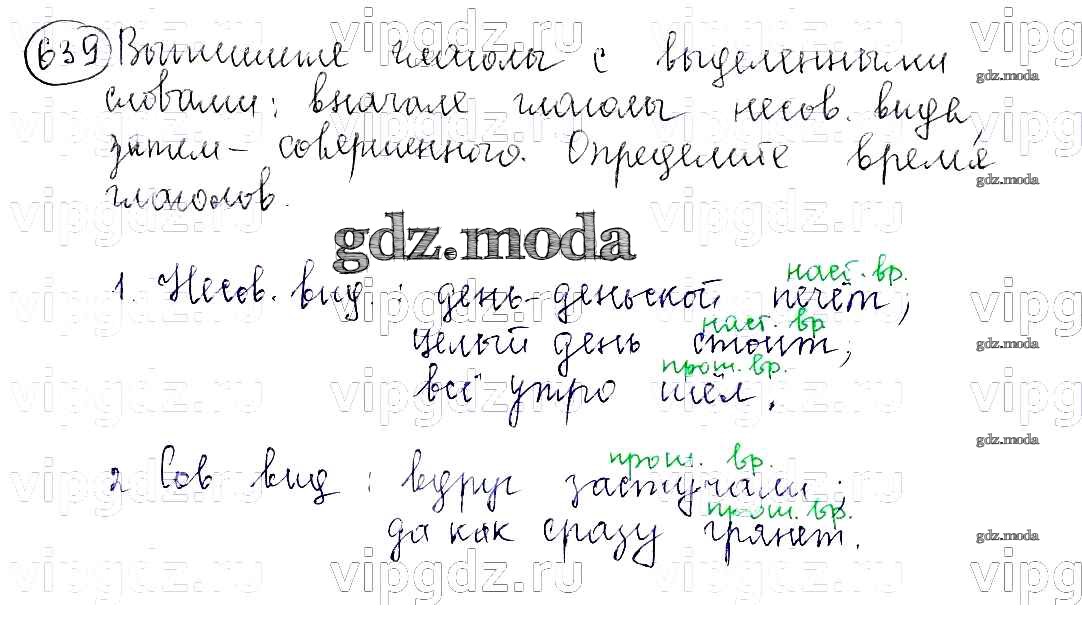 639 Выпишите глаголы с выделенными
словами: вначале глаголы несов. вида,
затем – совершенного. Определите время
глаголов.
gdz.moda
наст. вр.
1. Несов. вид : день-деньской печёт,
наст. вр
целый день стоит;
прош. вр.
всё утро шёл.
прош. вр.
2 Сов вид : вдруг застучали;
прош. вр.
да как сразу грянет.
vipgdz.ru
gdz.moda